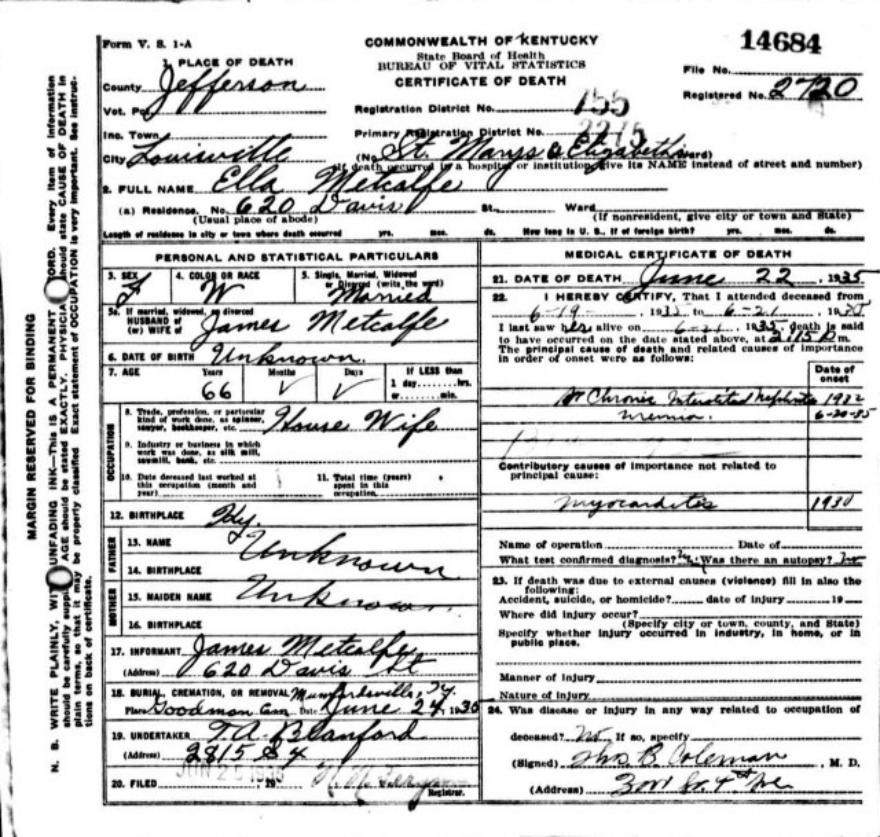 Form V. S. 1-A
COMMONWEALTH OF KENTUCKY
State Board of Health
BUREAU OF VITAL STATISTICS
CERTIFICATE OF DEATH
14684
File No.
Registered No. 2720
1. PLACE OF DEATH
County Jefferson
Vot. Pct.
Inc. Town
City Louisville
Registration District No. 755
Primary Registration District No.
(No. St. Marys & Elizabeths Ward)
(If death occurred in a hospital or institution, give its NAME instead of street and number)
2. FULL NAME Ella Metcalfe
(a) Residence. No. 620 Davis St. Ward
(Usual place of abode) (If nonresident, give city or town and State)
Length of residence in city or town where death occurred yrs. mos. ds. How long in U. S., if of foreign birth? yrs. mos. ds.
PERSONAL AND STATISTICAL PARTICULARS
3. SEX F
4. COLOR OR RACE W
5. Single, Married, Widowed or Divorced (write the word) Married
5a. If married, widowed, or divorced
HUSBAND of
(or) WIFE of James Metcalfe
6. DATE OF BIRTH Unknown.
7. AGE Years Months Days If LESS than
66 1 day........hrs.
or........min.
OCCUPATION
8. Trade, profession, or particular
kind of work done, as spinner,
sawyer, bookkeeper, etc. House Wife
9. Industry or business in which
work was done, as silk mill,
sawmill, bank, etc.
10. Date deceased last worked at
this occupation (month and
year)
11. Total time (years)
spent in this
occupation
12. BIRTHPLACE Ky.
FATHER
13. NAME Unknown
14. BIRTHPLACE
MOTHER
15. MAIDEN NAME Unknown
16. BIRTHPLACE
17. INFORMANT James Metcalfe
(Address) 620 Davis St
18. BURIAL, CREMATION, OR REMOVAL Munfordsville, Ky.
Place Goodman Cem Date June 24, 1935
19. UNDERTAKER T. A. Blanford
(Address) 2815 S 4
20. FILED JUN 25 1935 19
Registrar.
MEDICAL CERTIFICATE OF DEATH
21. DATE OF DEATH June 22, 1935
22. I HEREBY CERTIFY, That I attended deceased from
6-19-, 1935 to 6-21, 1935
I last saw her alive on 6-21, 1935, death is said
to have occurred on the date stated above, at 2:15 P m.
The principal cause of death and related causes of importance
in order of onset were as follows:
Date of onset
Chronic Interstitial Nephritis 1932
6-20-35
Contributory causes of importance not related to
principal cause:
Myocarditis 1930
Name of operation Date of
What test confirmed diagnosis? Was there an autopsy? No
23. If death was due to external causes (violence) fill in also the
following:
Accident, suicide, or homicide? date of injury 19
Where did injury occur?
(Specify city or town, county, and State)
Specify whether injury occurred in industry, in home, or in
public place.
Manner of injury
Nature of injury
24. Was disease or injury in any way related to occupation of
deceased? No If so, specify
(Signed) Thos B. Coleman, M. D.
(Address) So. 4th Ave
MARGIN RESERVED FOR BINDING
N. B. WRITE PLAINLY, WITH UNFADING INK—THIS IS A PERMANENT RECORD. Every item of information
should be carefully supplied. AGE should be stated EXACTLY. PHYSICIANS should state CAUSE OF DEATH in
plain terms, so that it may be properly classified. Exact statement of OCCUPATION is very important. See instruc-
tions on back of certificate.